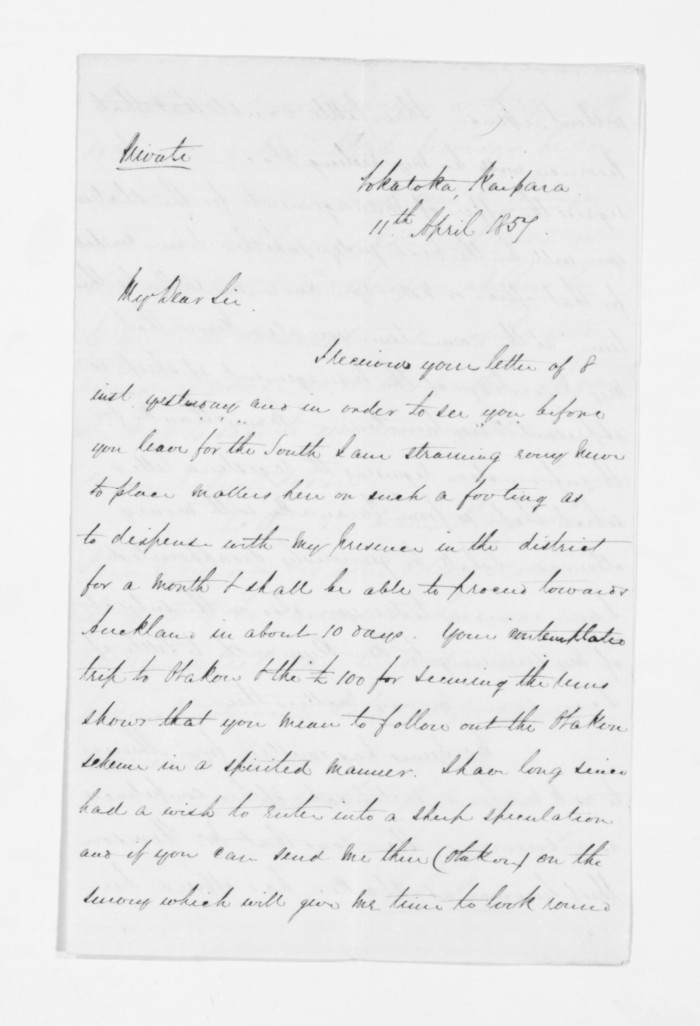 Private
Tokatoka, Kaipara
11th April 1857.
My Dear Sir
I received your letter of 8
inst yesterday and in order to see you before
you leave for the South I am straining every nerve
to place matters here on such a footing as
to dispense with my presence in the district
for a month & shall be able to proceed towards
Auckland in about 10 days. Your contemplated
trip to Otakou & the £100 for securing the runs
shows that you mean to follow out the Otakou
scheme in a spirited manner. I have long since
had a wish to enter into a sheep speculation
and if you can send me there (Otakou) on the
survey which will give me time to look round